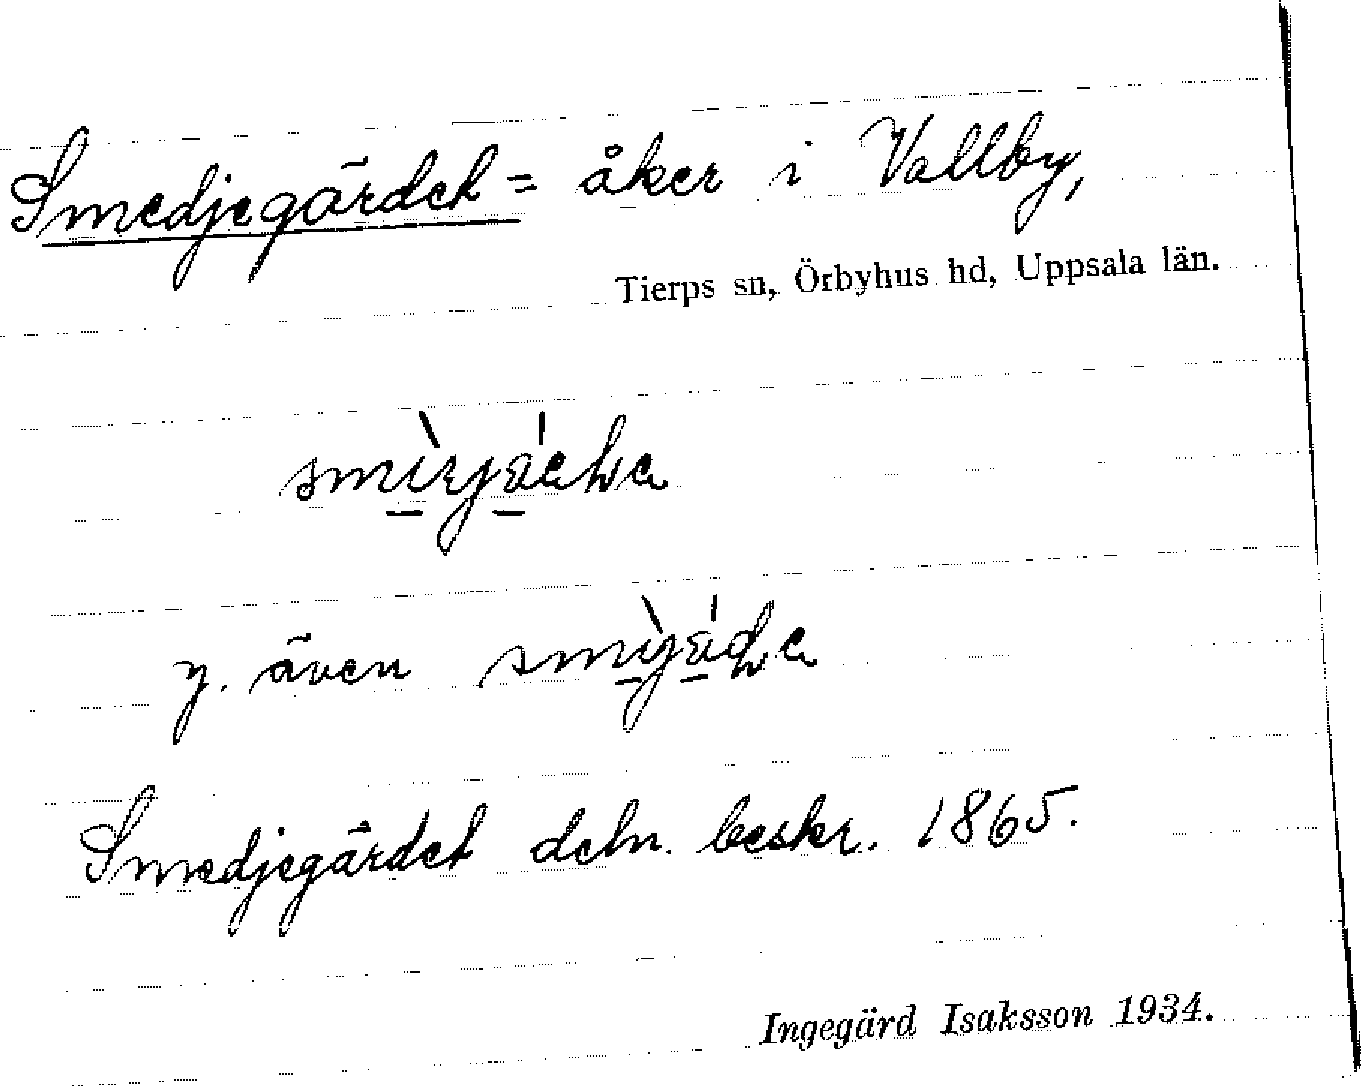 Smedjegärdet = åker i Vallby,
Tierps sn, Örbyhus hd, Uppsala län.
y. även
Smedjegärdet deln. beskr. 1865.
Ingegärd Isaksson 1934.